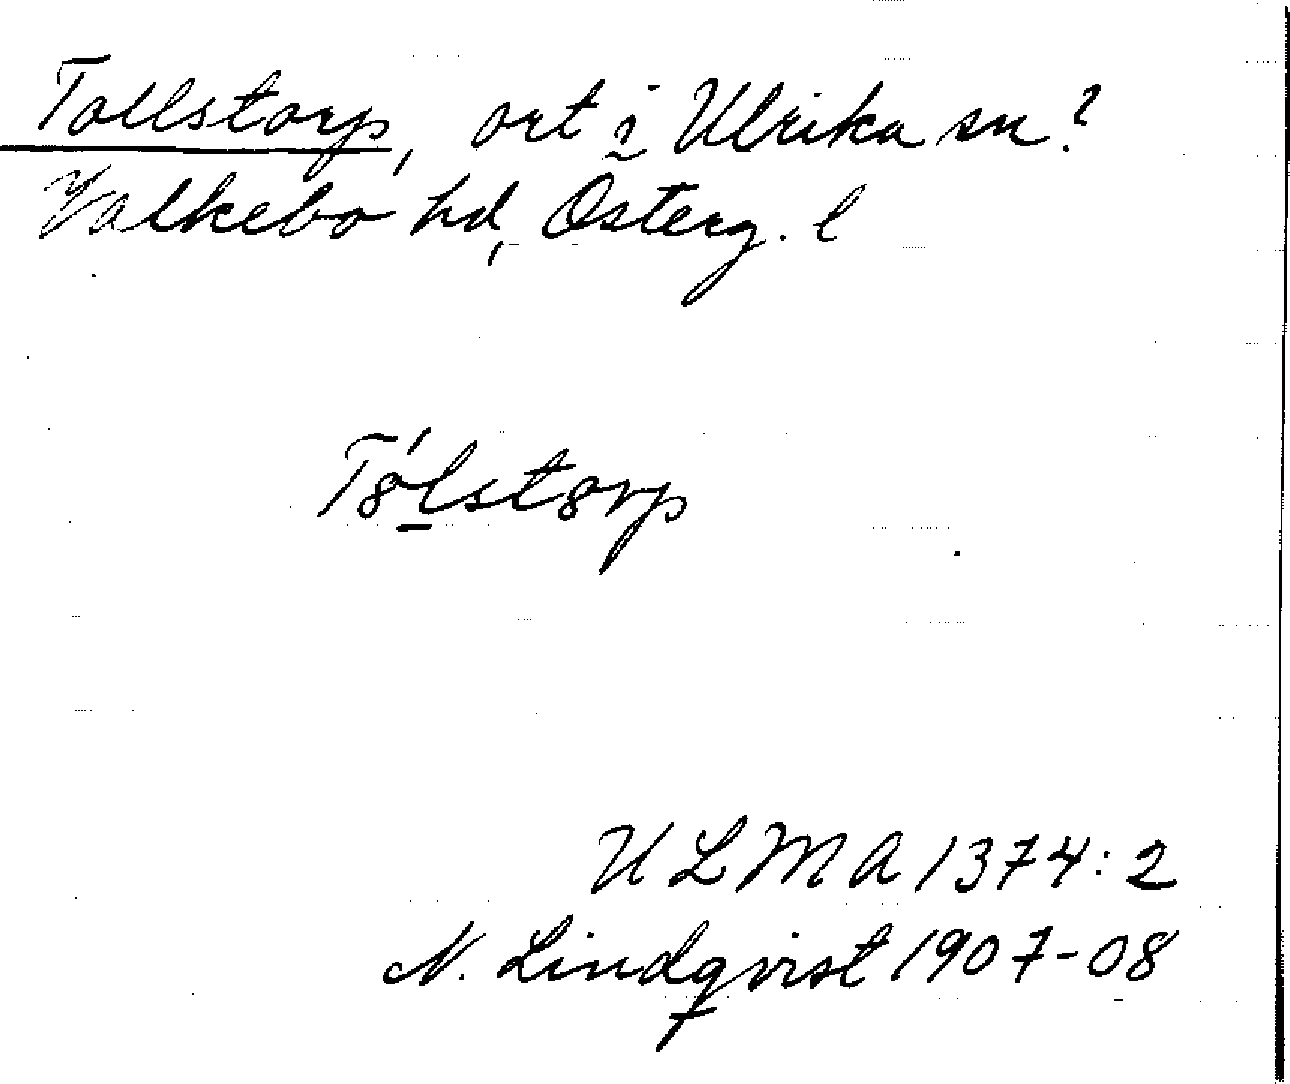 Tollstorp, ort i Ulrika sn?
Valkebo hd, Österg. l
Tȣ́lstȣrp
ULMA 1374:2
N. Lindqvist 1907-08